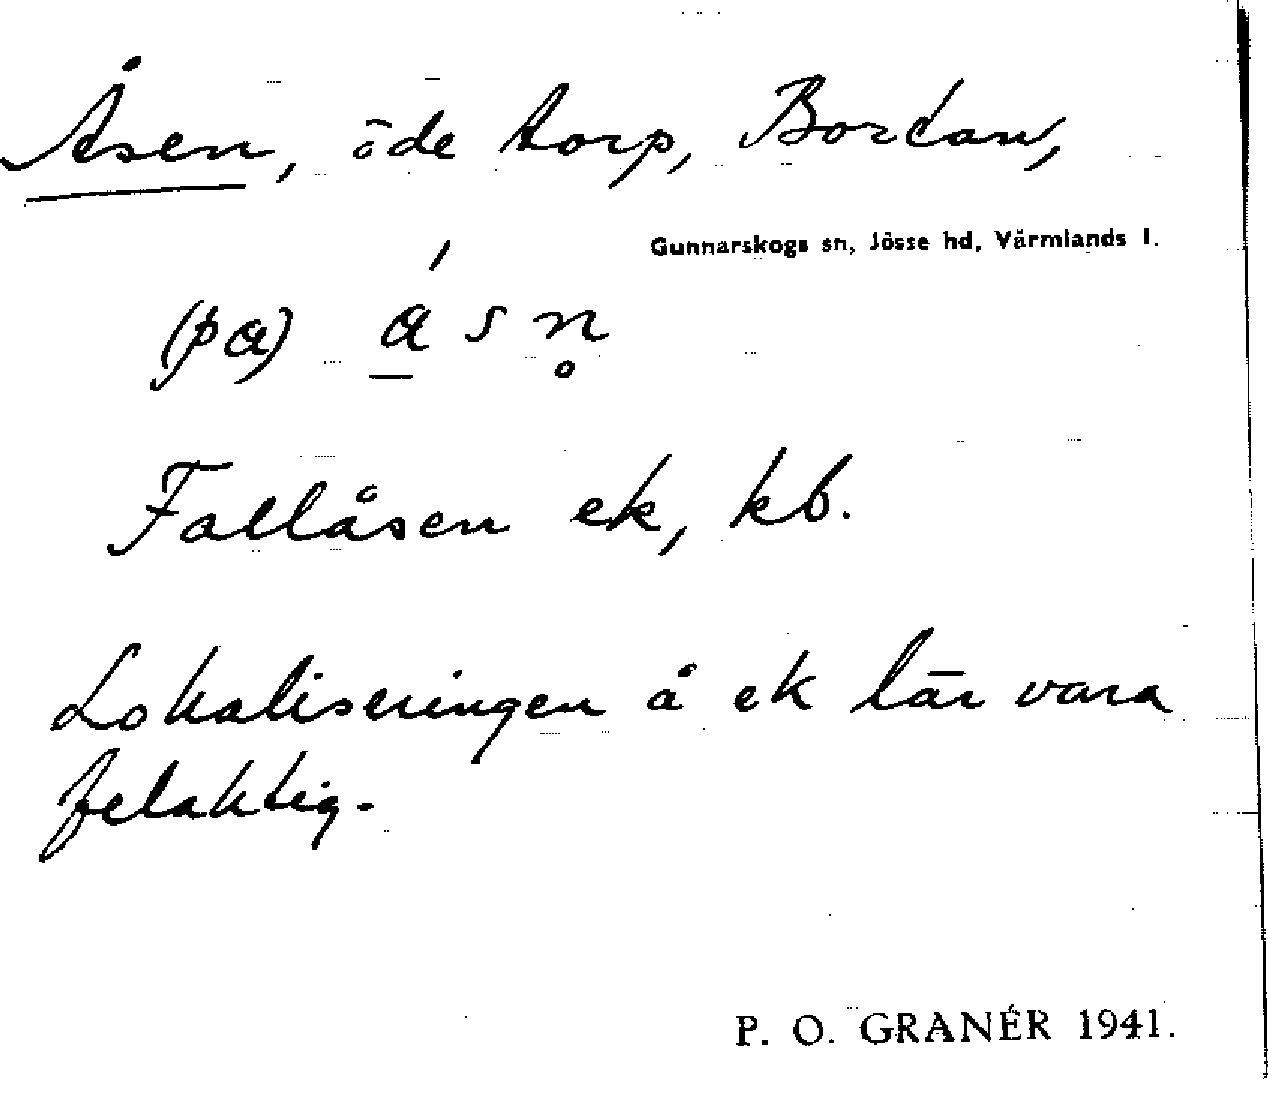 Åsen, öde torp, Bordan,
Gunnarskogs sn, Jösse hd, Värmlands l.
(på) ǻ s n̥
Fallåsen ek, kb.
Lokaliseringen å ek lär vara
felaktig.
P. O. GRANÉR 1941.